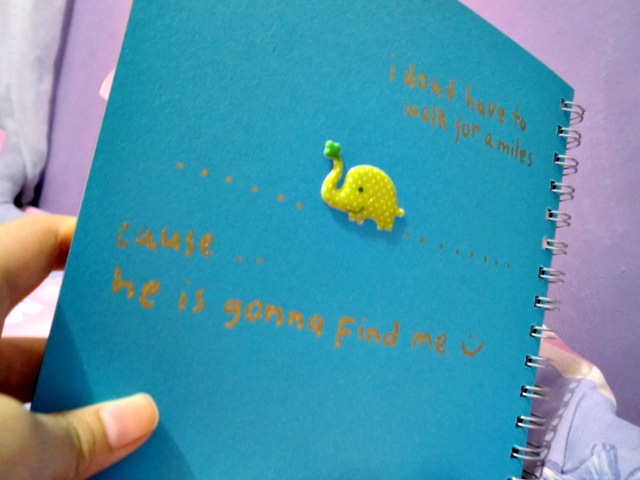 i dont have to
walk for a miles
cause ..
he is gonna find me